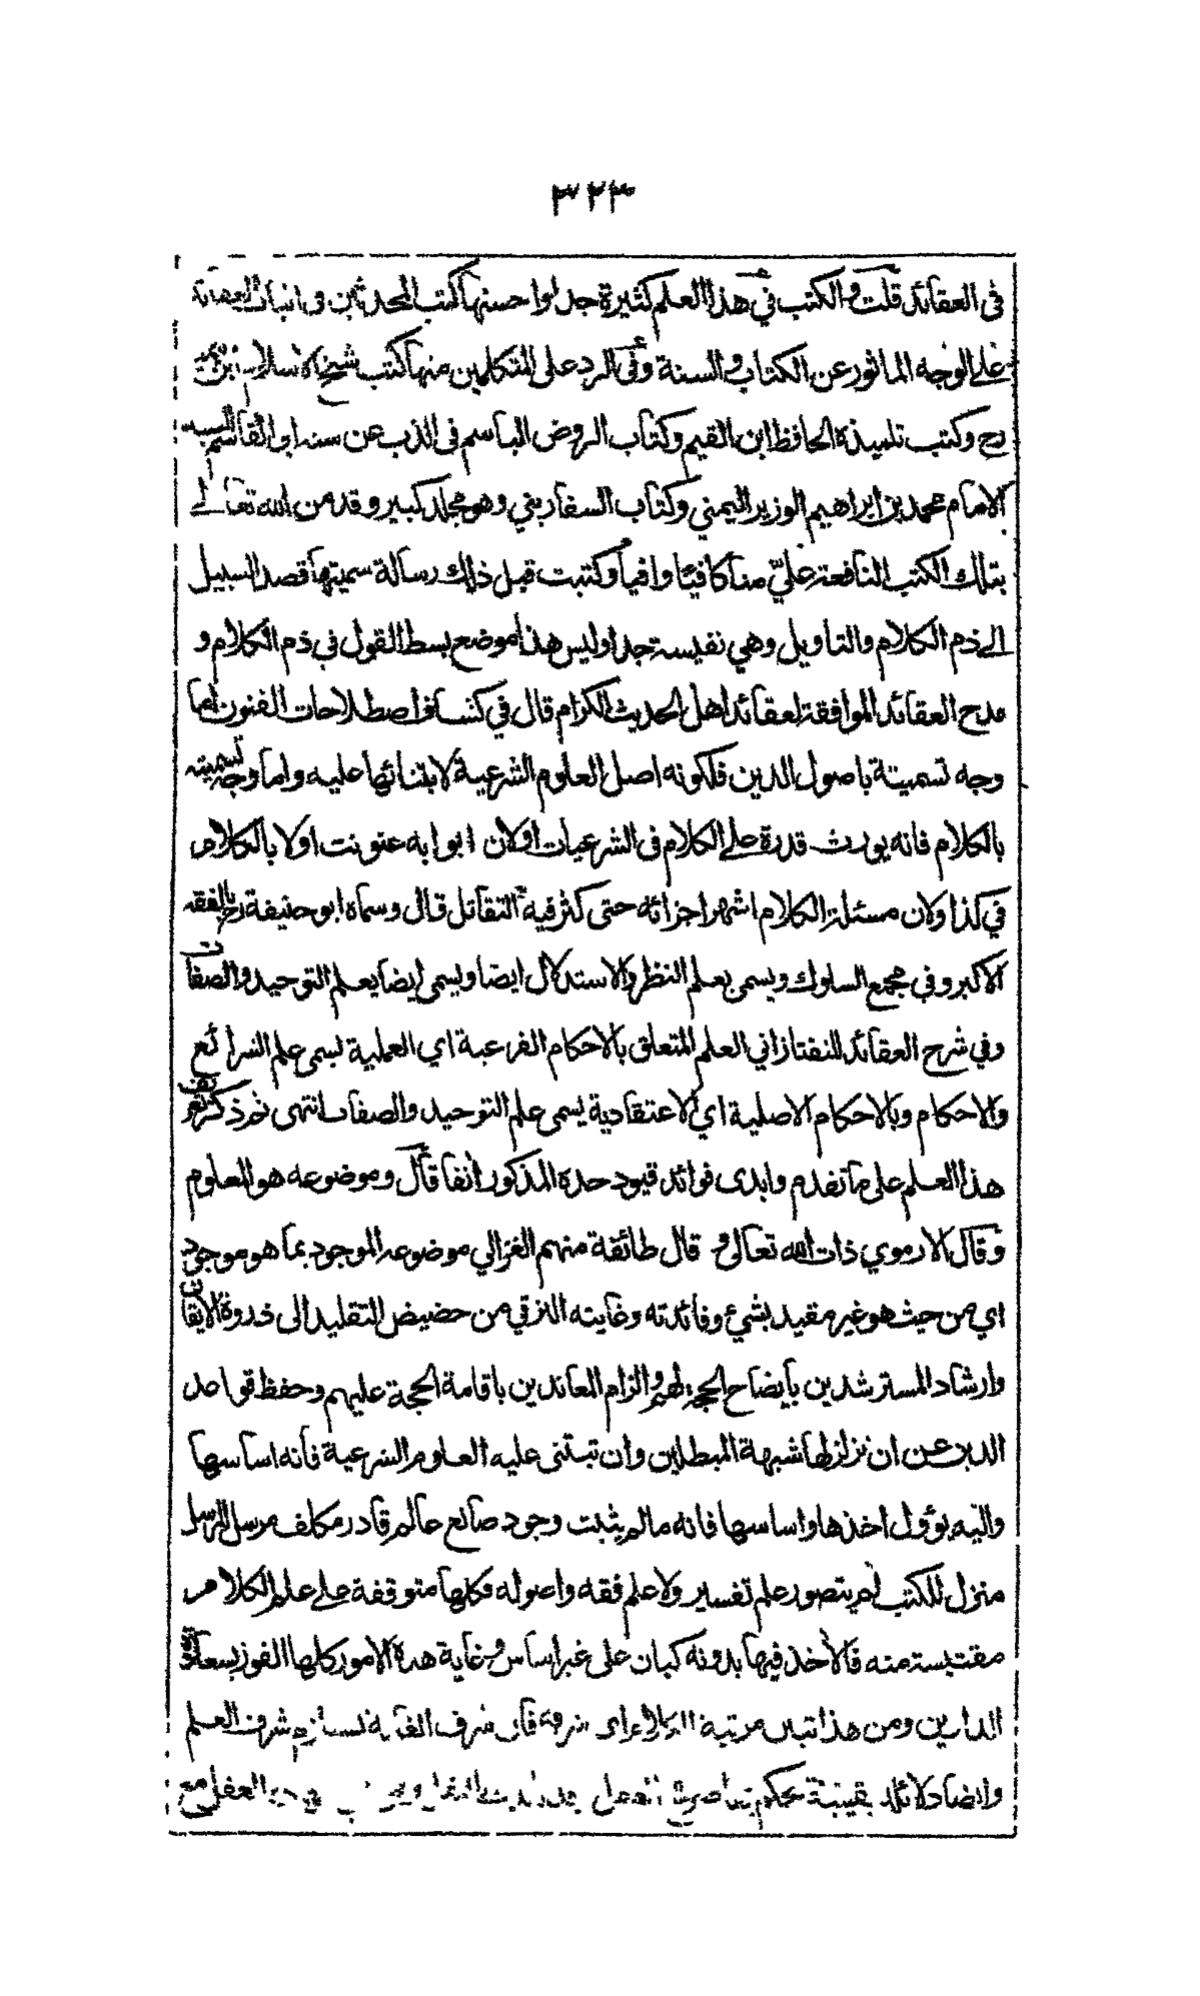 ٣٢٣
فى العقائد قلت والكتب في هذا العلم كثيرة جدا واحسنها كتب المحدثين في اثبات العقائد
على الوجه الماثور عن الكتاب والسنة وفى الرد على المتكلمين منها كتب شيخ الاسلام ابن تيمية
رح وكتب تلميذه الحافظ ابن القيم وكتاب الروض الباسم فى الذب عن سنة ابى القاسم للسيد
الامام محمد بن ابراهيم الوزير اليمني وكتاب السفاريني وهو مجلد كبير وقد من الله تعالى
بتلك الكتب النافعة عليّ منا كافيًا وافيا وكتبت قبل ذلك رسالة سميتها قصد السبيل
الى ذم الكلام والتاويل وهي نفيسة جدا وليس هذا موضع بسط القول في ذم الكلام و
مدح العقائد الموافقة لعقائد اهل الحديث الكرام قال في كشاف اصطلاحات الفنون اما
وجه تسميتة باصول الدين فلكونه اصل العلوم الشرعية لابتنائها عليه واما وجه تسميته
بالكلام فانه يورث قدرة على الكلام فى الشرعيات او لان ابوابه عنونت اولا بالكلام
في كذا ولان مسئلة الكلام اشهر اجزائه حتى كثر فيه التقاتل قال وسماه ابو حنيفة رح بالفقه
الاكبر وفي مجمع السلوك ويسمى بعلم النظر والاستدلال ايضا ويسمى ايضا بعلم التوحيد والصفات
وفي شرح العقائد للتفتازاني العلم المتعلق بالاحكام الفرعية اي العملية يسمى علم الشرائع
والاحكام وبالاحكام الاصلية اي الاعتقادية يسمى علم التوحيد والصفات انتهى ثم ذكر تعريف
هذا العلم على ما تقدم وابدى فوائد قيود حده المذكور انفا قال وموضوعه هو المعلوم
وقال الارموي ذات الله تعالى وقال طائفة منهم الغزالي موضوعه الموجود بما هو موجود
اي من حيث هو غير مقيد بشيء وفائدته وغايته الترقي من حضيض التقليد الى ذروة الايقان
وارشاد المسترشدين بايضاح الحجة لهم والزام المعاندين باقامة الحجة عليهم وحفظ قواعد
الدين عن ان تزلزلها شبهة المبطلين وان تبتنى عليه العلوم الشرعية فانه اساسها
واليه يؤول اخذها واساسها فانه مالم يثبت وجود صانع عالم قادر مكلف مرسل للرسل
منزل للكتب لم يتصور علم تفسير ولا علم فقه واصوله فكلها متوقفة على علم الكلام
مقتبسة منه فالأخذ فيها بدونه كبان على غير اساس وغاية هذه الامور كلها الفوز بسعادة
الدارين ومن هذا تبين مرتبة الكلام اي شرفه فان شرف الغاية يستلزم شرف العلم
وايضا دلائله يقينية يحكم بها صريح العقل وقد تايدت بالنقل وهي العقل مع